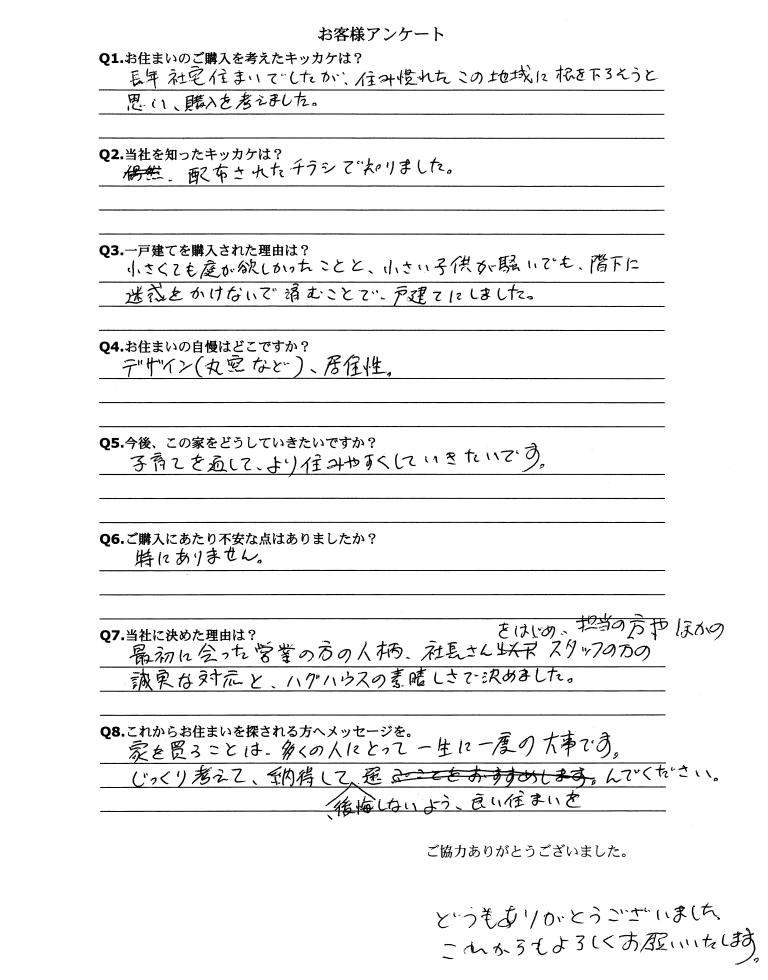 お客様アンケート
Q1.お住まいのご購入を考えたキッカケは？
長年社宅住まいでしたが、住み慣れたこの地域に根を下ろそうと
思い、購入を考えました。
Q2.当社を知ったキッカケは？
偶然、配布されたチラシで知りました。
Q3.一戸建てを購入された理由は？
小さくても庭が欲しかったことと、小さい子供が騒いでも、階下に
迷惑をかけないで済むことで、戸建てにしました。
Q4.お住まいの自慢はどこですか？
デザイン(丸窓など)、居住性。
Q5.今後、この家をどうしていきたいですか？
子育てを通して、より住みやすくしていきたいです。
Q6.ご購入にあたり不安な点はありましたか？
特にありません。
Q7.当社に決めた理由は？
をはじめ、担当の方やほかの
最初に会った営業の方の人柄、社長さん スタッフの方の
誠実な対応と、ハグハウスの素晴しさで決めました。
Q8.これからお住まいを探される方へメッセージを。
家を買うことは、多くの人にとって一生に一度の大事です。
じっくり考えて、納得して、選ぶことをおすすめします。んでください。
、後悔しないよう、良い住まいを
ご協力ありがとうございました。
どうもありがとうございました。
これからもよろしくお願いいたします。